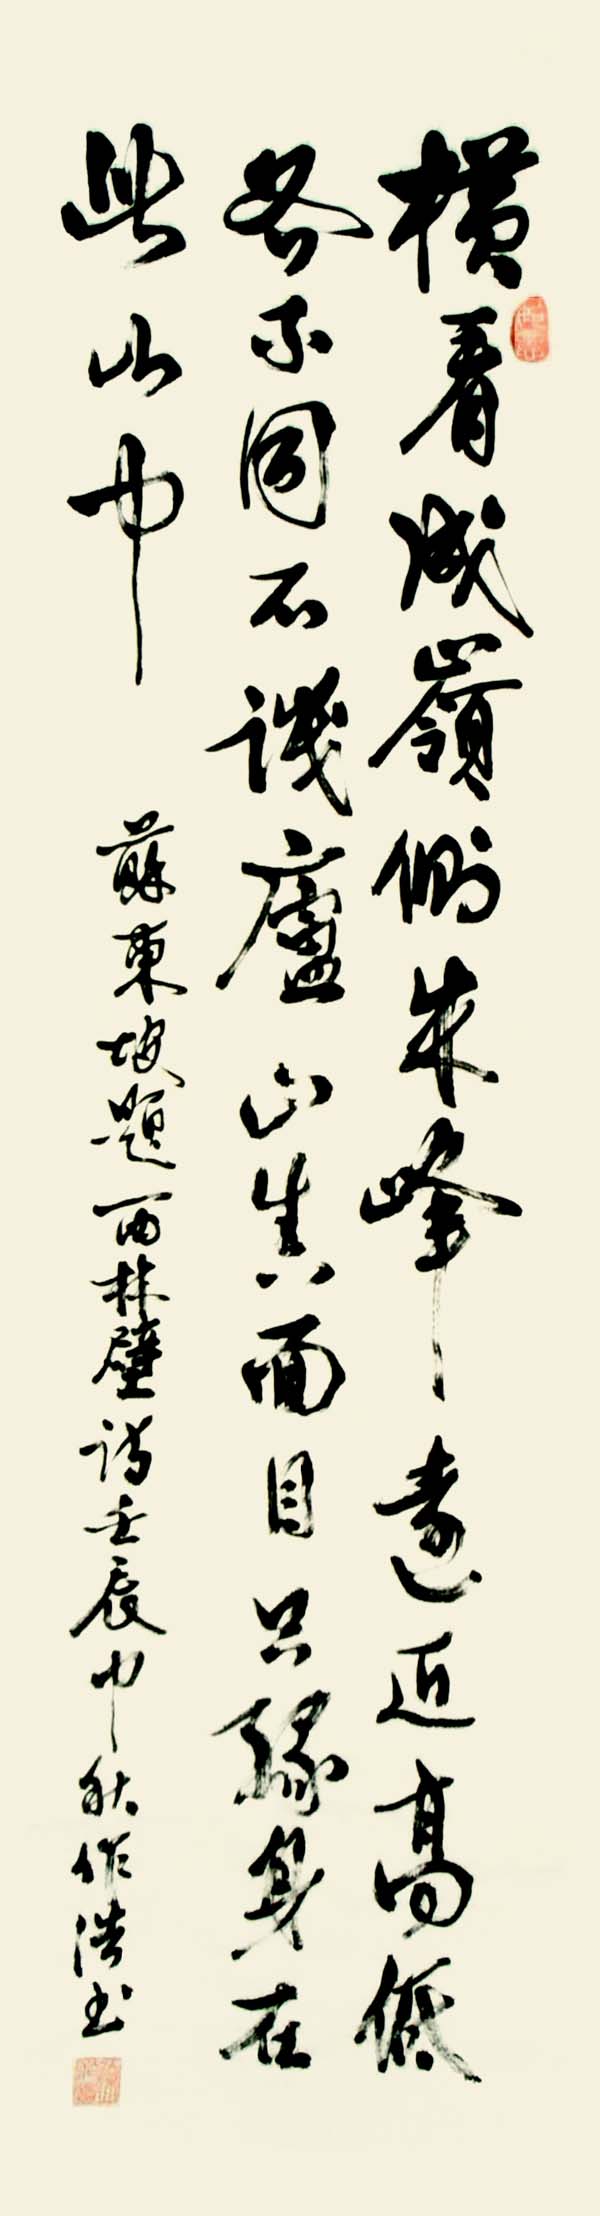 橫看成嶺側成峰遠近高低
各不同不識廬山真面目只緣身在
此山中
蘇東坡題西林壁詩壬辰中秋作浩书